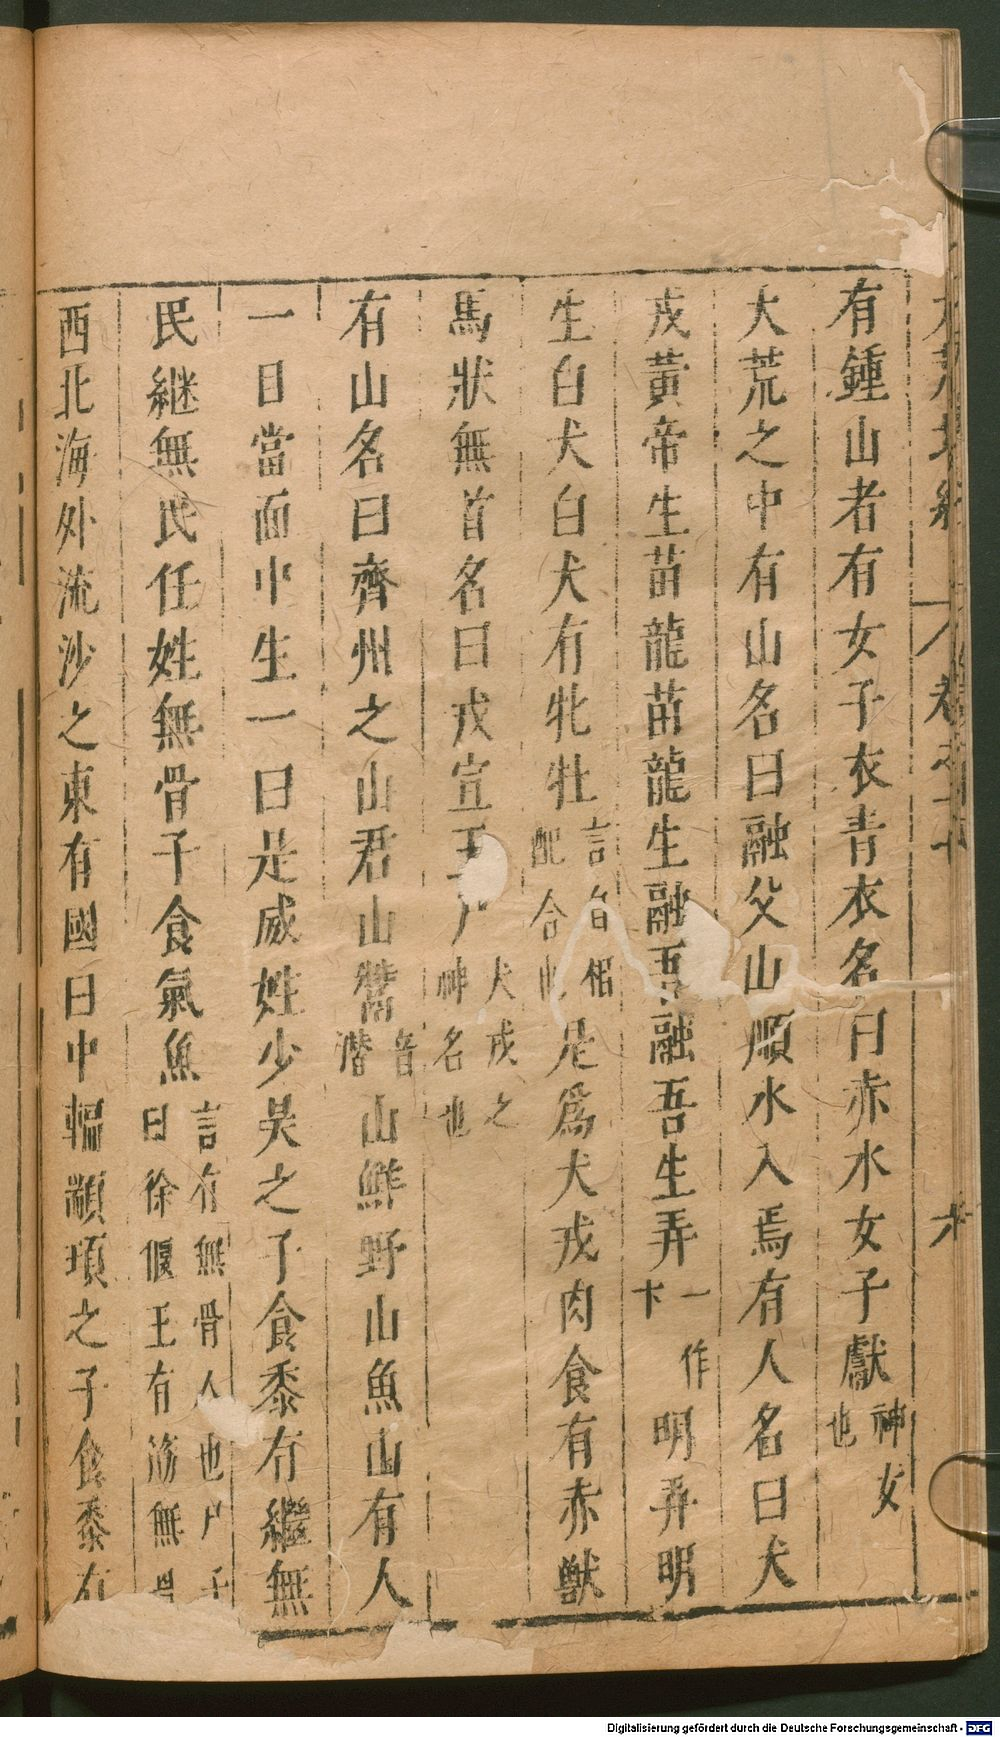 有鍾山者有女子衣青衣名曰赤水女子獻神女也
大荒之中有山名曰融父山順水入焉有人名曰犬
戎黃帝生苗龍苗龍生融吾融吾生弄一作卞明弄明
生白犬白犬有牝牡言自相配合也是爲犬戎肉食有赤獸
馬狀無首名曰戎宣王尸犬戎之神名也
有山名曰齊州之山君山鬵音潜山鮮野山魚山有人
一目當面中生一曰是威姓少昊之子食黍有繼無
民継無民任姓無骨子食氣魚言有無骨人也尸子曰徐偃王有筋無骨
西北海外流沙之東有國曰中輪顓頊之子食黍有
大荒北經 卷之十 六
Digitalisierung gefördert durch die Deutsche Forschungsgemeinschaft - DFG